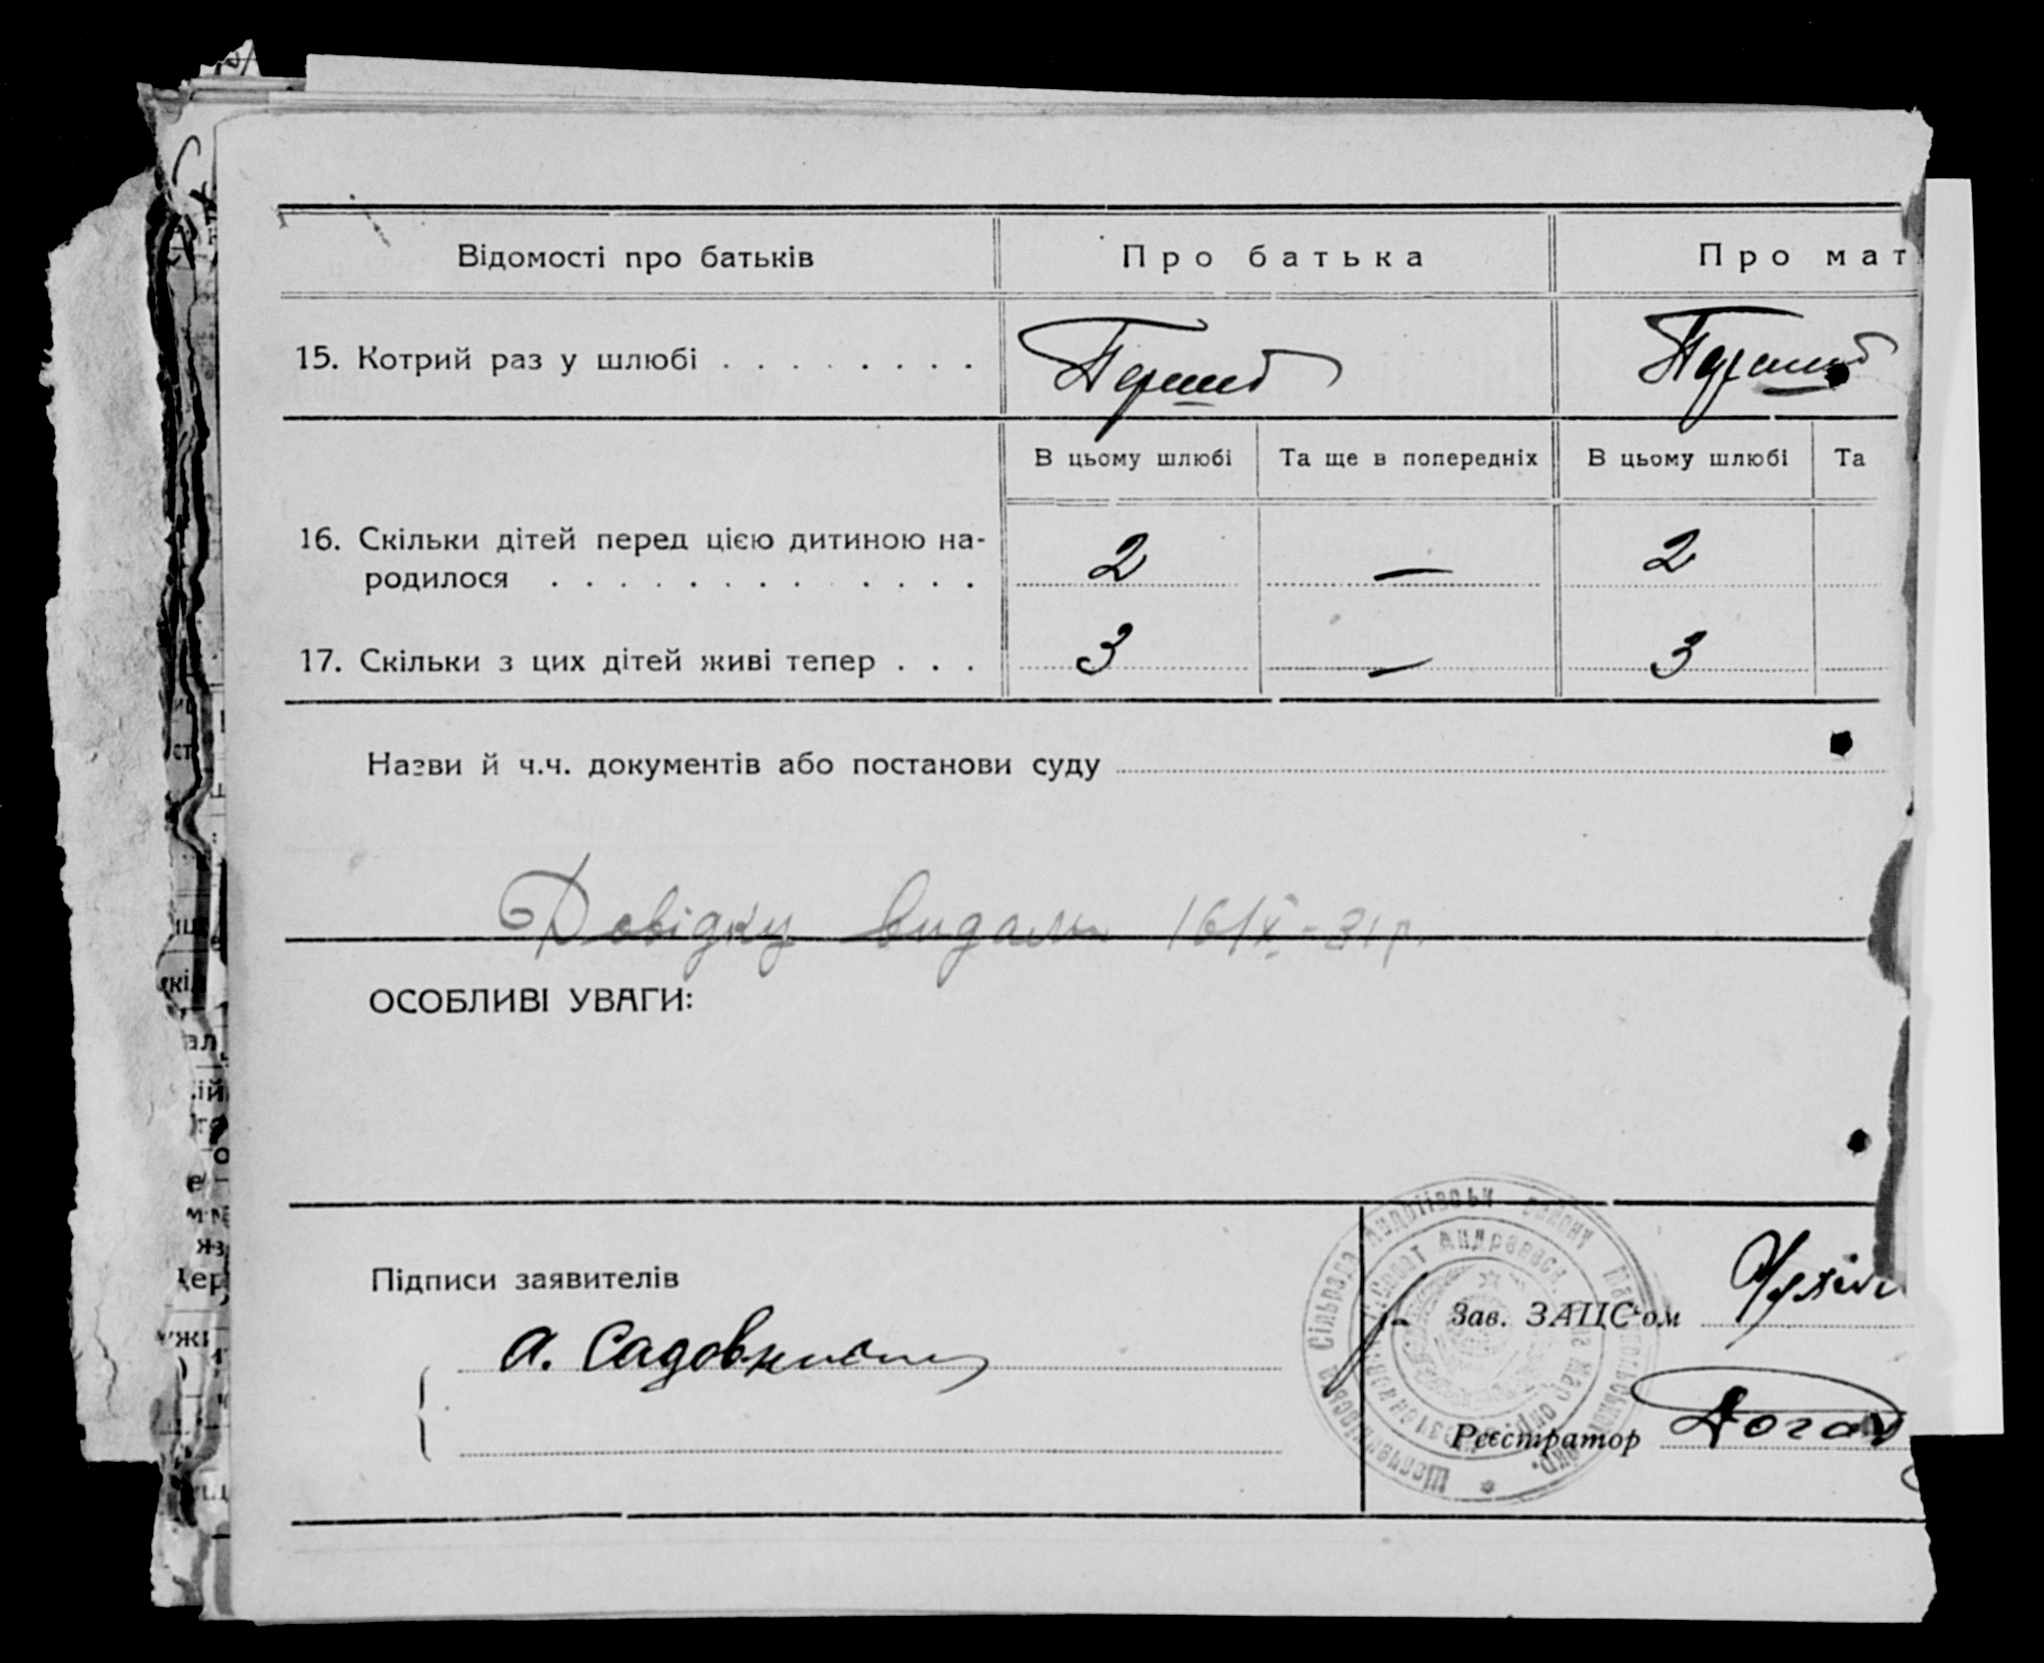 Відомості про батьків
Про батька
Про мат
15. Котрий раз у шлюбі . . . . . . . .
Перший
Перший
В цьому шлюбі
Та ще в попередніх
В цьому шлюбі
Та
16. Скільки дітей перед цією дитиною на-
родилося . . . . . . . . . . . . .
2
—
2
17. Скільки з цих дітей живі тепер . . .
3
—
3
Назви й ч.ч. документів або постанови суду
Довідку видали 16/X-31 р.
ОСОБЛИВІ УВАГИ:
Підписи заявителів
А.
Зав. ЗАЦС-ом
Реєстратор
Сільрада
району